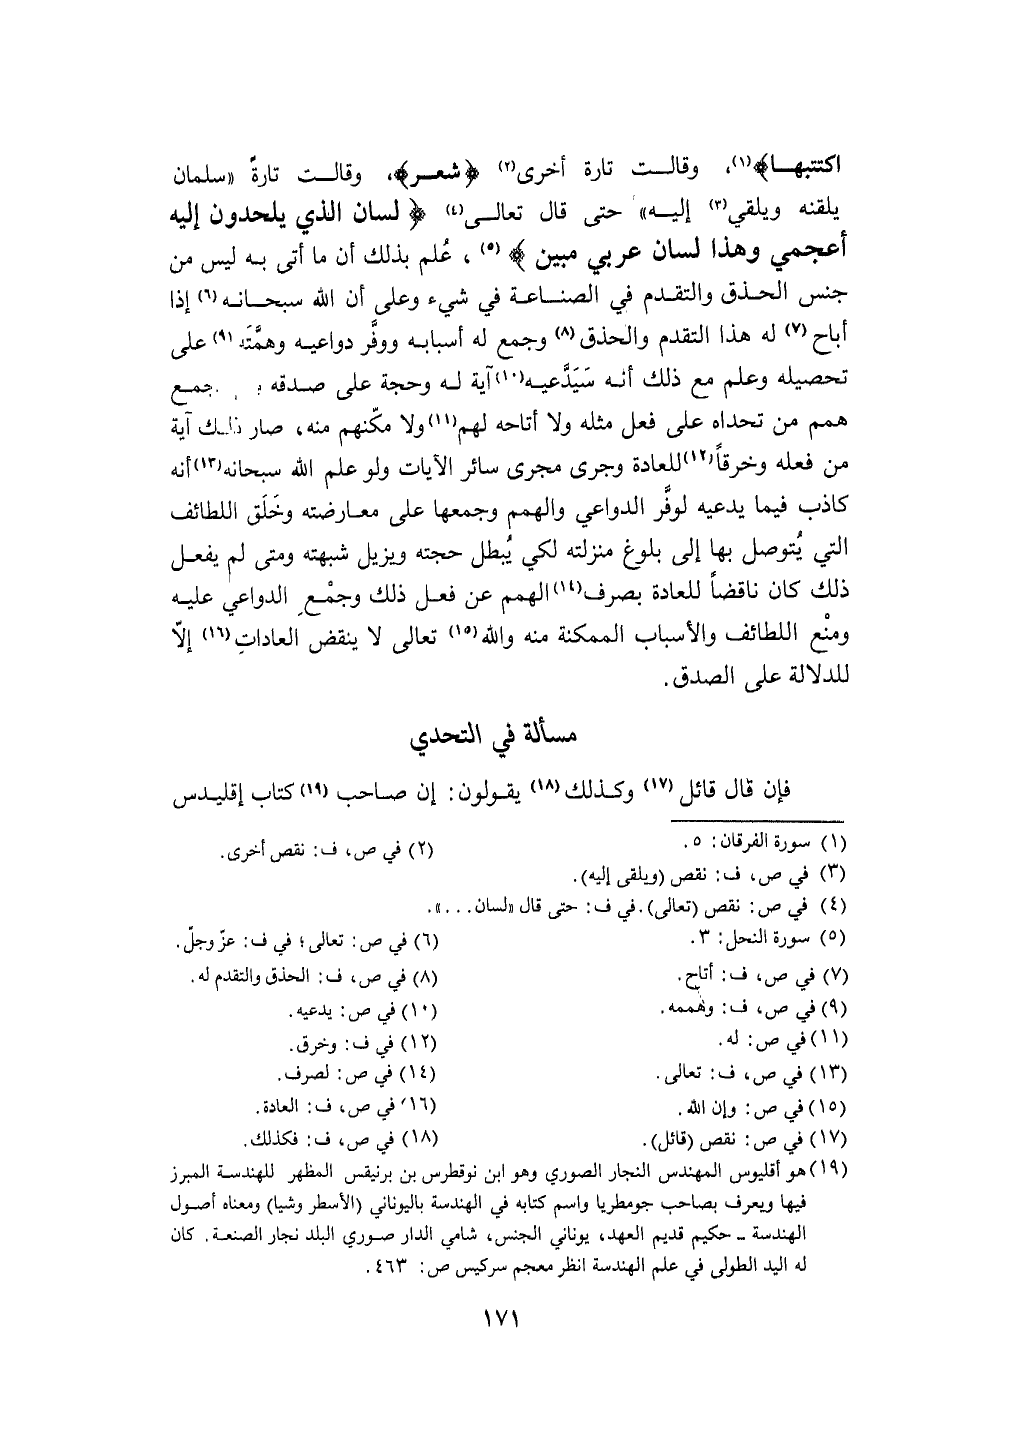 اكتتبهـا﴾(١)، وقالـت تارة أخرى(٢) ﴿شعـر﴾، وقالـت تارةً «سلمان
يلقنه ويلقي(٣) إليـه» حتى قال تعالـى(٤) ﴿ لسان الذي يلحدون إليه
أعجمي وهذا لسان عربي مبين ﴾(٥) ، عُلم بذلك أن ما أتى بـه ليس من
جنس الحـذق والتقدم في الصناعـة في شيء وعلى أن الله سبحانـه(٦) إذا
أباح(٧) له هذا التقدم والحذق(٨) وجمع له أسبابـه ووفَّر دواعيـه وهمَّتَه(٩) على
تحصيله وعلم مع ذلك أنـه سَيَدَّعيـه(١٠)آية لـه وحجة على صـدقه جمـع
همم من تحداه على فعل مثله ولا أتاحه لهم(١١)ولا مكّنهم منه، صار ذلـك آية
من فعله وخرقاً(١٢)للعادة وجرى مجرى سائر الآيات ولو علم الله سبحانه(١٣)أنه
كاذب فيما يدعيه لوفَّر الدواعي والهمم وجمعها على معـارضته وخَلَق اللطائف
التي يُتوصل بها إلى بلوغ منزلته لكي يُبطل حجته ويزيل شبهته ومتى لم يفعـل
ذلك كان ناقضاً للعادة بصرف(١٤)الهمم عن فعـل ذلك وجمْـعِ الدواعي عليـه
ومنْع اللطائف والأسباب الممكنة منه والله(١٥) تعالى لا ينقض العاداتِ(١٦) إلّا
للدلالة على الصدق.
مسألة في التحدي
فإن قال قائل(١٧) وكـذلك(١٨) يقـولون: إن صـاحب(١٩)كتاب إقليـدس
(١) سورة الفرقان: ٥. (٢) في ص، ف: نقص أخرى.
(٣) في ص، ف: نقص (ويلقى إليه).
(٤) في ص: نقص (تعالى). في ف: حتى قال «لسان...».
(٥) سورة النحل: ٣. (٦) في ص: تعالى؛ في ف: عزّ وجلّ.
(٧) في ص، ف: أتاح. (٨) في ص، ف: الحذق والتقدم له.
(٩) في ص، ف: وهممه. (١٠) في ص: يدعيه.
(١١) في ص: له. (١٢) في ف: وخرق.
(١٣) في ص، ف: تعالى. (١٤) في ص: لصرف.
(١٥) في ص: وإن الله. (١٦) في ص، ف: العادة.
(١٧) في ص: نقص (قائل). (١٨) في ص، ف: فكذلك.
(١٩) هو أقليوس المهندس النجار الصوري وهو ابن نوقطرس بن برنيقس المظهر للهندسـة المبرز
فيها ويعرف بصاحب جومطريا واسم كتابه في الهندسة باليوناني (الأسطر وشيا) ومعناه أصـول
الهندسة ـ حكيم قديم العهد، يوناني الجنس، شامي الدار صـوري البلد نجار الصنعـة. كان
له اليد الطولى في علم الهندسة انظر معجم سركيس ص: ٤٦٣.
١٧١